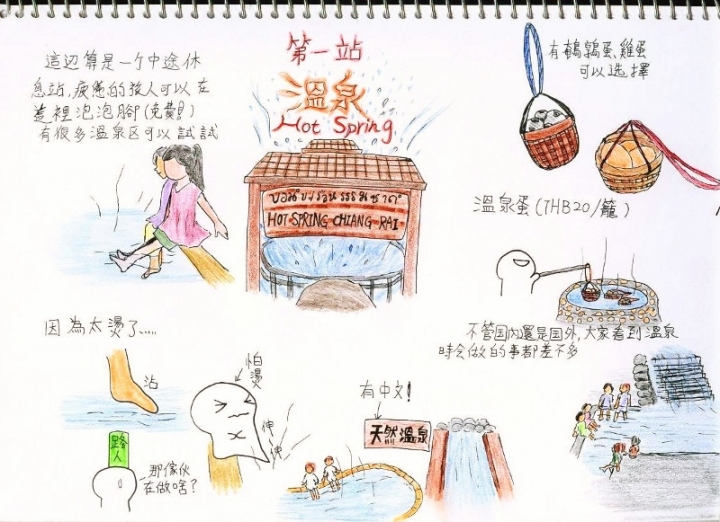 第一站
溫泉
Hot Spring
這边算是一个中途休
息站,疲憊的旅人可以在
這裡泡泡腳(免費!)
有很多溫泉区可以試試
HOT SPRING CHIANG RAI
有鵪鶉蛋,雞蛋
可以选擇
溫泉蛋(THB20/籠)
不管国内還是国外,大家看到溫泉
時会做的事都差不多
因為太燙了.....
沾
怕燙
伸一伸
路人
那傢伙
在做啥?
有中文!
天然溫泉